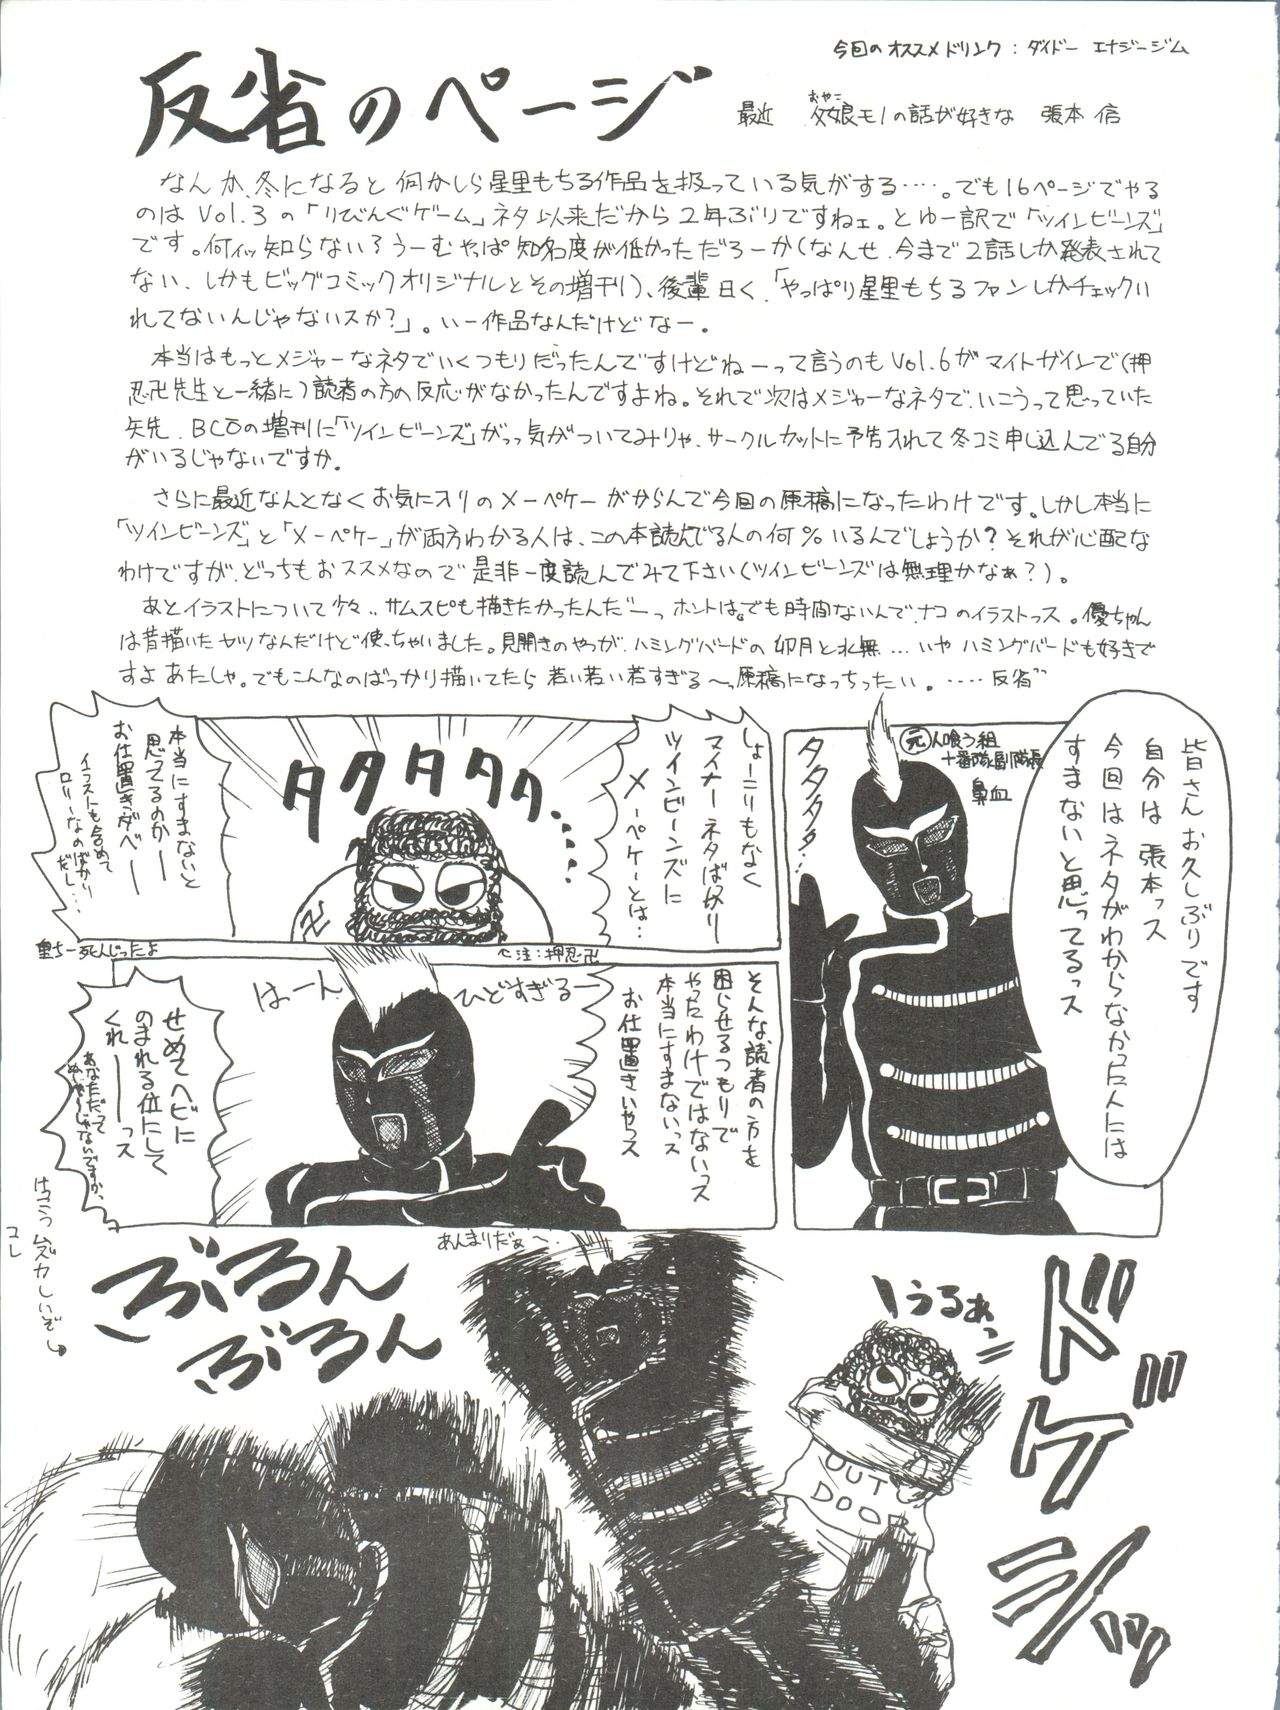 今回のオススメドリンク:ダイドー エナジージム
反省のページ
最近 父娘モノの話が好きな 張本 信
おやこ
なんか、冬になると何かしら星里もちる作品を扱っている気がする……。でも16ページでやる
のはVol.3の「りびんぐゲーム」ネタ以来だから2年ぶりですねェ。とゆー訳で「ツインビーンズ」
です。何ィッ知らない?うーむやっぱ知名度が低かっただろーか(なんせ、今まで2話しか発表されて
ない、しかもビッグコミックオリジナルとその増刊)、後輩曰く、「やっぱり星里もちるファンしかチェックい
れてないんじゃないスか?」。いー作品なんだけどなー。
本当はもっとメジャーなネタでいくつもりだったんですけどねーって言うのもVol.6がマイトガインで(押
忍卍先生と一緒に)読者の方の反応がなかったんですよね。それで次はメジャーなネタで、いこうって思っていた
矢先、BCOの増刊に「ツインビーンズ」がっっ気がついてみりゃ、サークルカットに予告入れて冬コミ申し込んでる自分
がいるじゃないですか。
さらに最近なんとなくお気に入りのメーペケーがからんで今回の原稿になったわけです。しかし本当に
「ツインビーンズ」と「メーペケー」が両方わかる人は、この本読んでる人の何%いるんでしょうか?それが心配な
わけですが、どっちもおススメなので是非一度読んでみて下さい(ツインビーンズは無理かなぁ?)。
あとイラストについて少々、サムスピも描きたかったんだーっホントは。でも時間ないんで、ナコのイラストっス。優ちゃん
は昔描いたヤツなんだけど使っちゃいました。見開きのやつが、ハミングバードの卯月と水無…いやハミングバードも好きで
すよあたしゃ。でもこんなのばっかり描いてたら若い若い若すぎる〜っ原稿になっちったい。……反省
皆さんお久しぶりです
自分は張本っス
今回はネタがわからなかった人には
すまないと思ってるっス
元人喰う組
十番隊副隊長
鼻血
タタタタ…
しょーこりもなく
マイナーネタばかり
ツインビーンズに
メーペケーとは…
タタタタタ……
本当にすまないと
思ってるのかーー
お仕置きダベーー
イラストも含めて
ロリーなのばかり
だし…
注:押忍卍
重ちー死んじったよ
そんな、読者の方を
困らせるつもりで
やったわけではないっス
本当にすまないっス
お仕置きいやっス
ひどすぎるー
はーん
せめてヘビに
のまれる位にして
くれーーっス
あなただって
めちゃーじゃないですか、
けっこうムズカしいぞ
コレ
あんまりだぁ〜
ぶるん
ぶるん
うるぁっ
ドゲシッ
OUT
DOOR